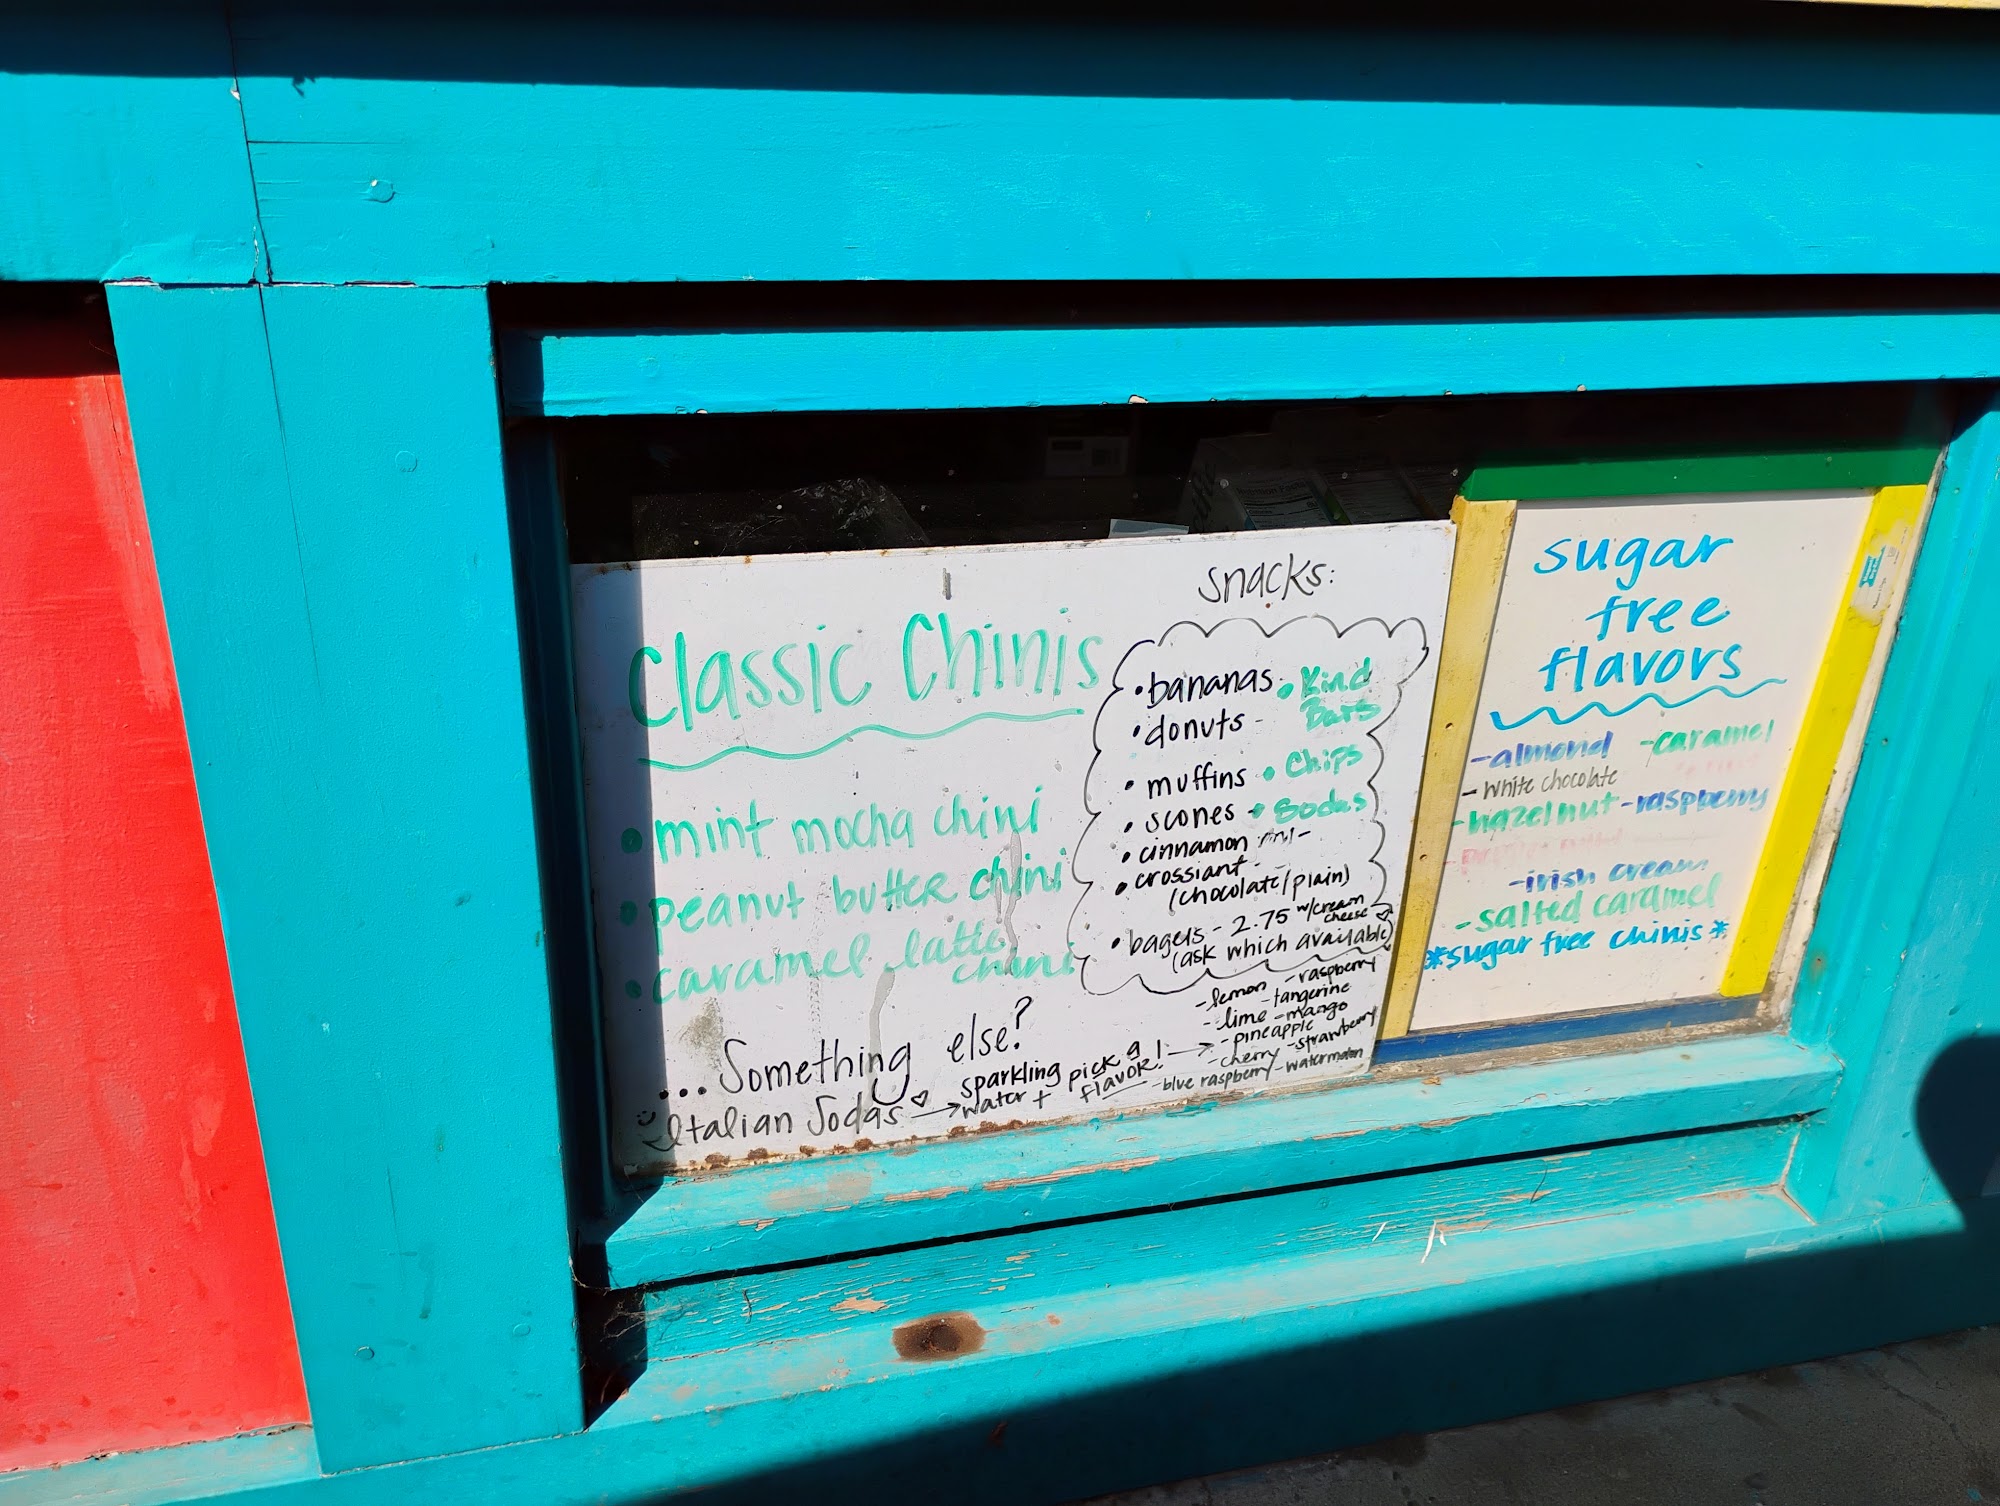 Classic Chinis
• mint mocha chini
• peanut butter chini
• caramel latte
chini
snacks:
• bananas • Kind
Bars
• donuts -
• muffins • Chips
• scones • Sodas
• cinnamon
• crossiant -
(chocolate/plain)
• bagels - 2.75 w/cream
cheese ♡
(ask which available)
...Something else?
Italian Sodas ♡ → sparkling
water + pick a
flavor! →
- lemon - raspberry
- tangerine
- lime - mango
- pineapple
- cherry - strawberry
- blue raspberry - watermelon
sugar
free
flavors
- almond - caramel
- white chocolate
- hazelnut - raspberry
- irish cream
- salted caramel
*sugar free chinis*